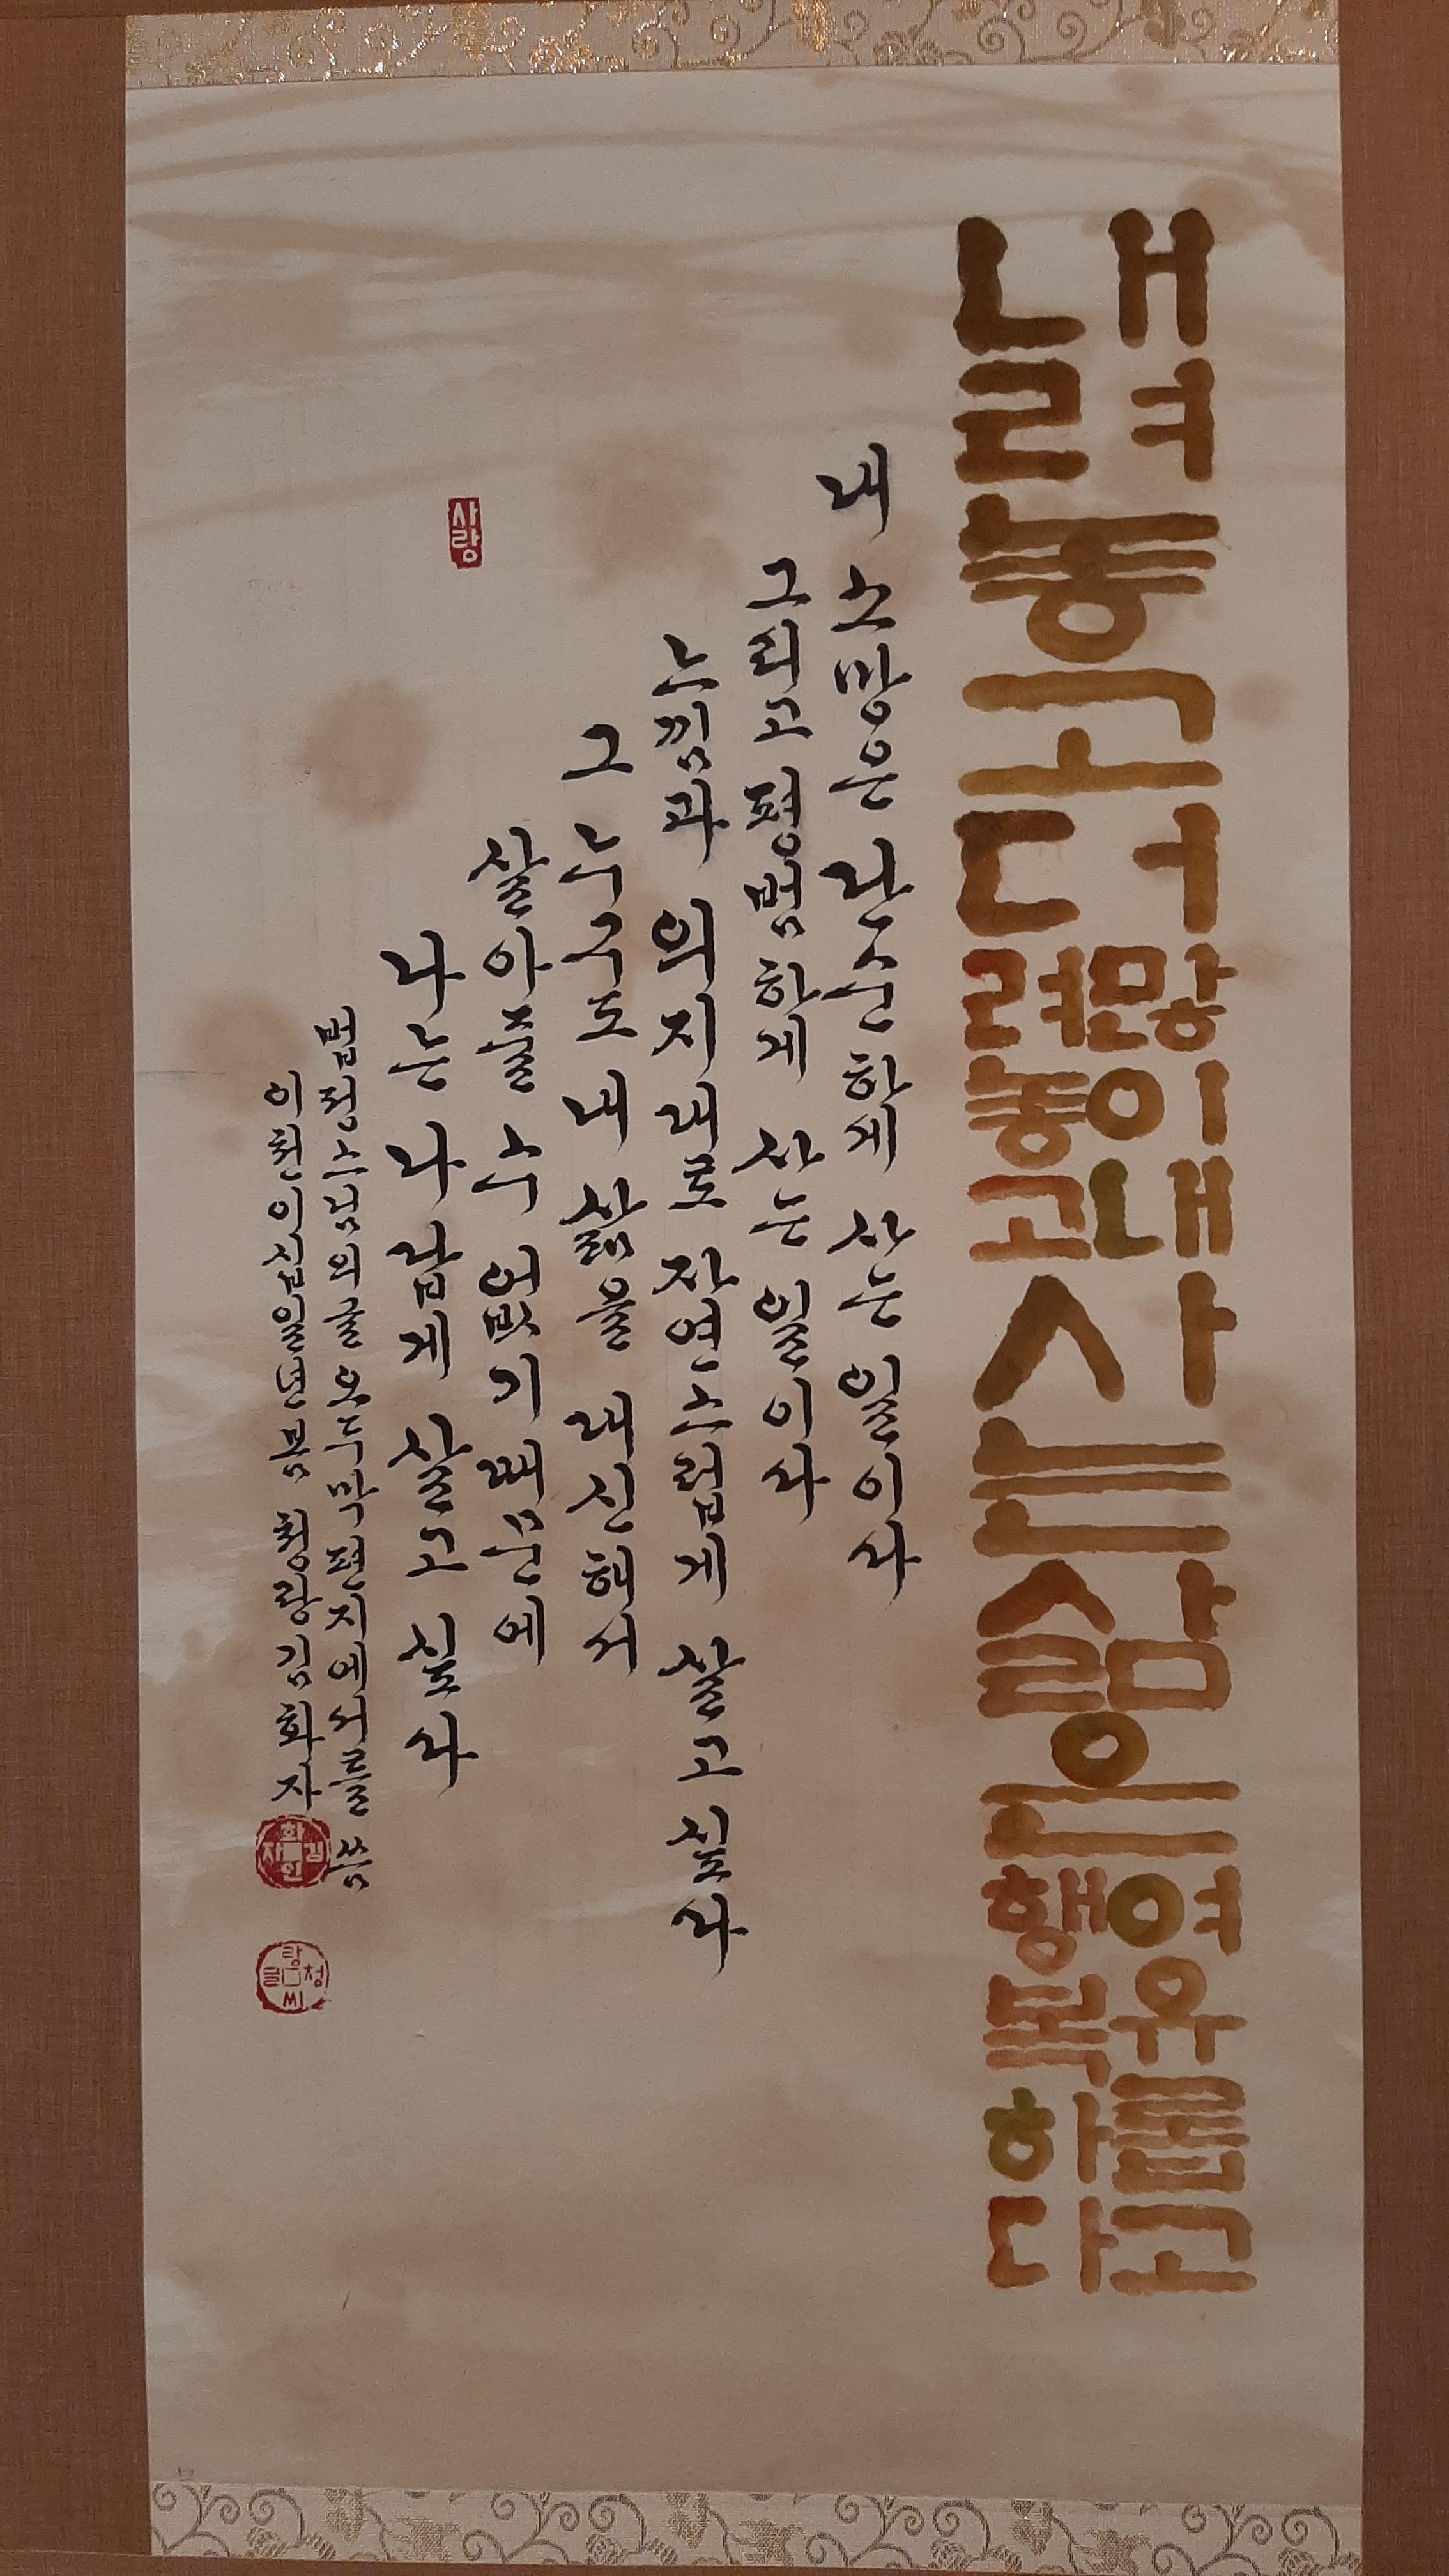 내려놓고 더 많이 내려놓고 사는 삶은 여유롭고 행복하다
내 소망은 단순하게 사는 일이다
그리고 평범하게 사는 일이다
느낌과 의지대로 자연스럽게 살고 싶다
그 누구도 내 삶을 대신해서
살아줄 수 없기 때문에
나는 나답게 살고 싶다
사랑
법정스님의 글 오두막 편지에서를 씀
이천이십일년 봄 청랑 김화자
김화자인
청랑글씨